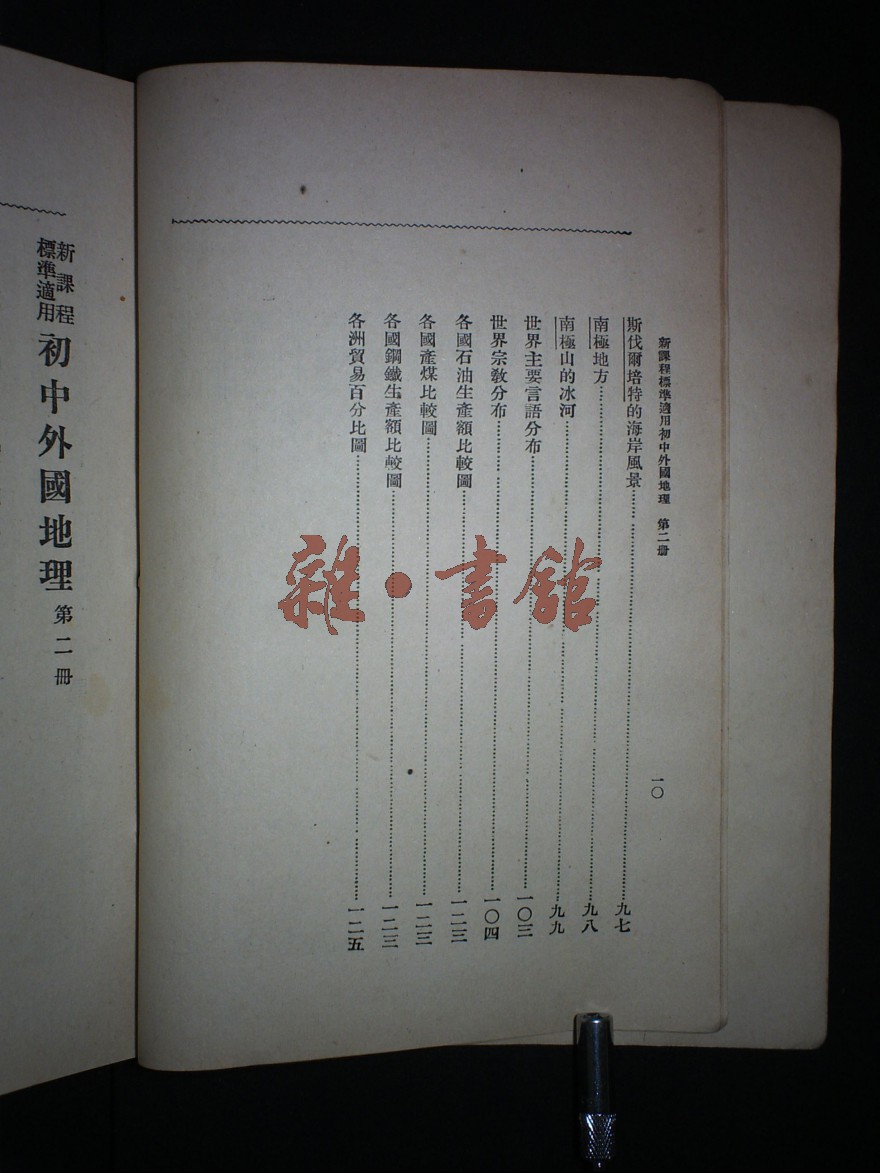 新課程標準適用初中外國地理 第二册
一〇
斯伐爾培特的海岸風景 九七
南極地方 九八
南極山的冰河 九九
世界主要言語分布 一〇三
世界宗教分布 一〇四
各國石油生產額比較圖 一二三
各國產煤比較圖 一二三
各國鋼鐵生產額比較圖 一二三
各洲貿易百分比圖 一二五
新課程
標準適用
初中外國地理 第二冊
雜·書館